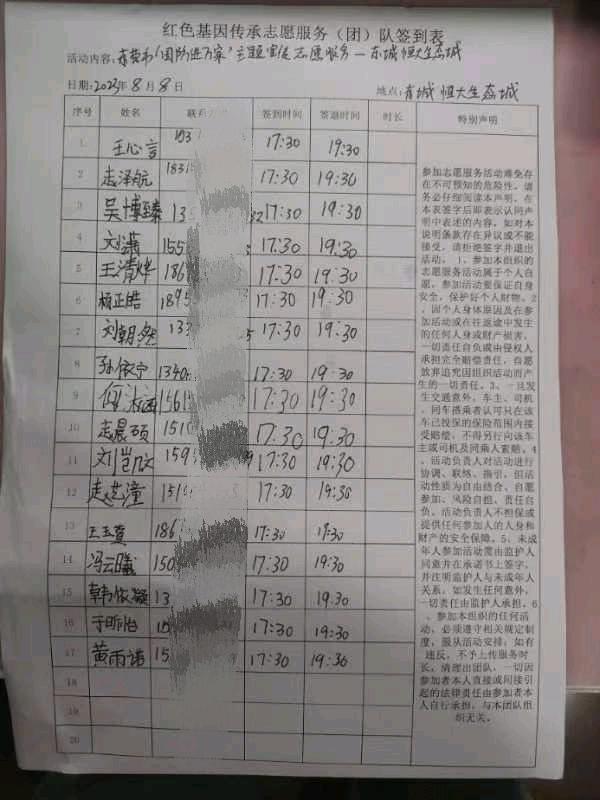 红色基因传承志愿服务（团）队签到表
活动内容：东营市“国防进万家”主题宣传志愿服务—东城恒大生态城
日期：2023年8月8日 地点：东城恒大生态城
序号 姓名 签到时间 签退时间 时长 特别声明
1 王心言 17:30 19:30
2 赵泽航 1831 17:30 19:30
3 吴博臻 13 32 17:30 19:30
4 刘潇 155 17:30 19:30
5 王清烨 186 17:30 19:30
6 杨正皓 1895 17:30 19:30
7 刘朝然 133 17:30 19:30
8 孙俊宁 1340 17:30 19:30
9 17:30 19:30
10 志晨硕 1510 17:30 19:30
11 刘岂凡 159 17:30 19:30
12 赵艺潼 1519 17:30 19:30
13 王玉萱 186 17:30 19:30
14 冯云曦 150 17:30 19:30
15 韩依凝 13 17:30 19:30
16 于昕怡 17:30 19:30
17 黄雨诺 15 17:30 19:30
18
19
20
参加志愿服务活动难免存
在不可预知的危险性，请
务必仔细阅读本声明，在
本表签字后即表示认同声
明中表述的内容，如对本
说明条款存在异议或不能
接受，请拒绝签字并退出
活动。1、参加本组织的
志愿服务活动属于个人自
愿，参加活动要保证自身
安全，保护好个人财物。2
、因个人身体原因及在参
加活动或在往返途中发生
的任何人身或财产损害，
一切责任自负或由侵权人
承担完全赔偿责任，自愿
放弃追究因组织活动而产
生的一切责任。3、一旦发
生交通意外，车主、司机
、同车搭乘者认可只在该
车已投保的保险范围内接
受赔偿，不得另行向该车
主或司机及同乘人索赔。4
、活动负责人对活动进行
协调、联络、指引，但活
动性质为自由结合、自愿
参加、风险自担、责任自
负。活动负责人不担保或
提供任何参加人的人身和财
产的安全保障。5、未成
年人参加活动需由监护人
同意并在承诺书上签字，
并注明监护人与未成年人
关系，如发生任何意外，
一切责任由监护人承担。6
、参加本组织的任何活
动，必须遵守相关规定制
度，服从活动安排；如有
违反，不予上传服务时
长，清理出团队，一切因
参加者本人直接或间接引
起的法律责任由参加者本
人自行承担，与本团队组
织无关。